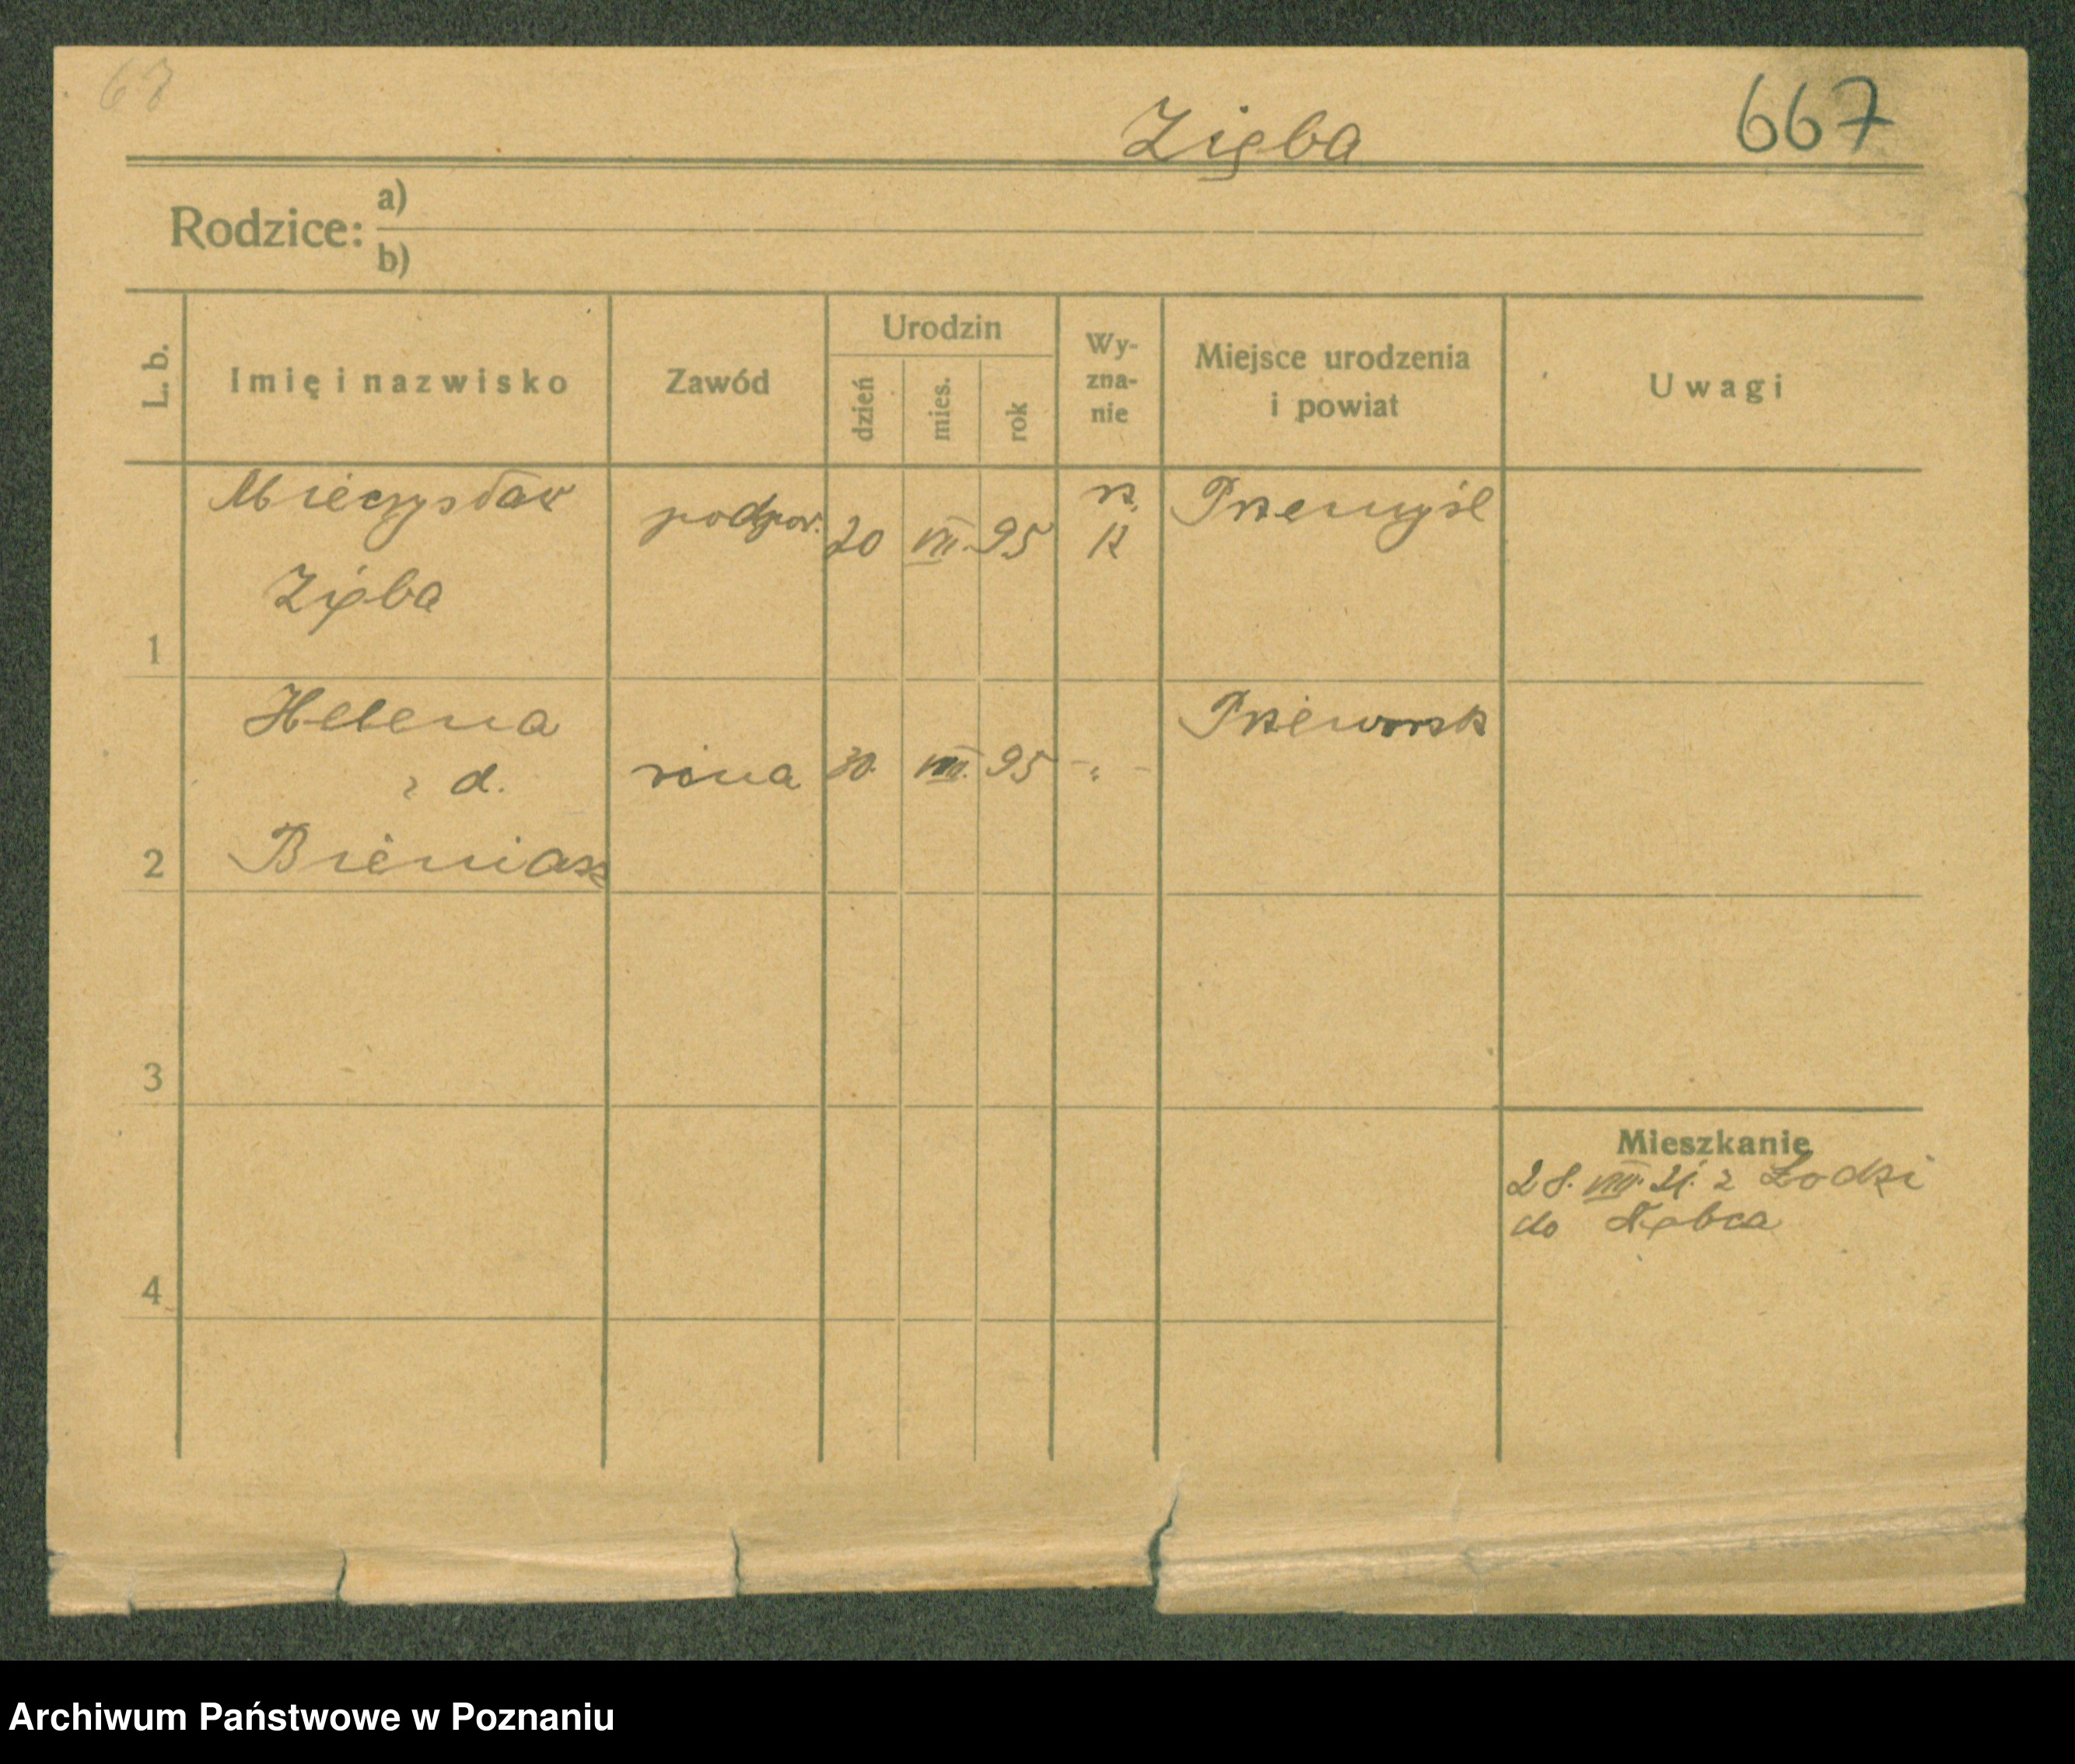 67
Zięba 667
Rodzice: a)
b)
L. b. Imię i nazwisko Zawód Urodzin dzień mies. rok Wy-zna-nie Miejsce urodzenia i powiat Uwagi
Mieczysław podpor. 20 VII. 95 rz. K Przemyśl
Zięba
1
Helena Przeworsk
z d. żona 30. VIII. 95 - " -
2 Bieniasz
3
Mieszkanie
28. VIII. 21. z Łodzi
do Dębca
4
Archiwum Państwowe w Poznaniu